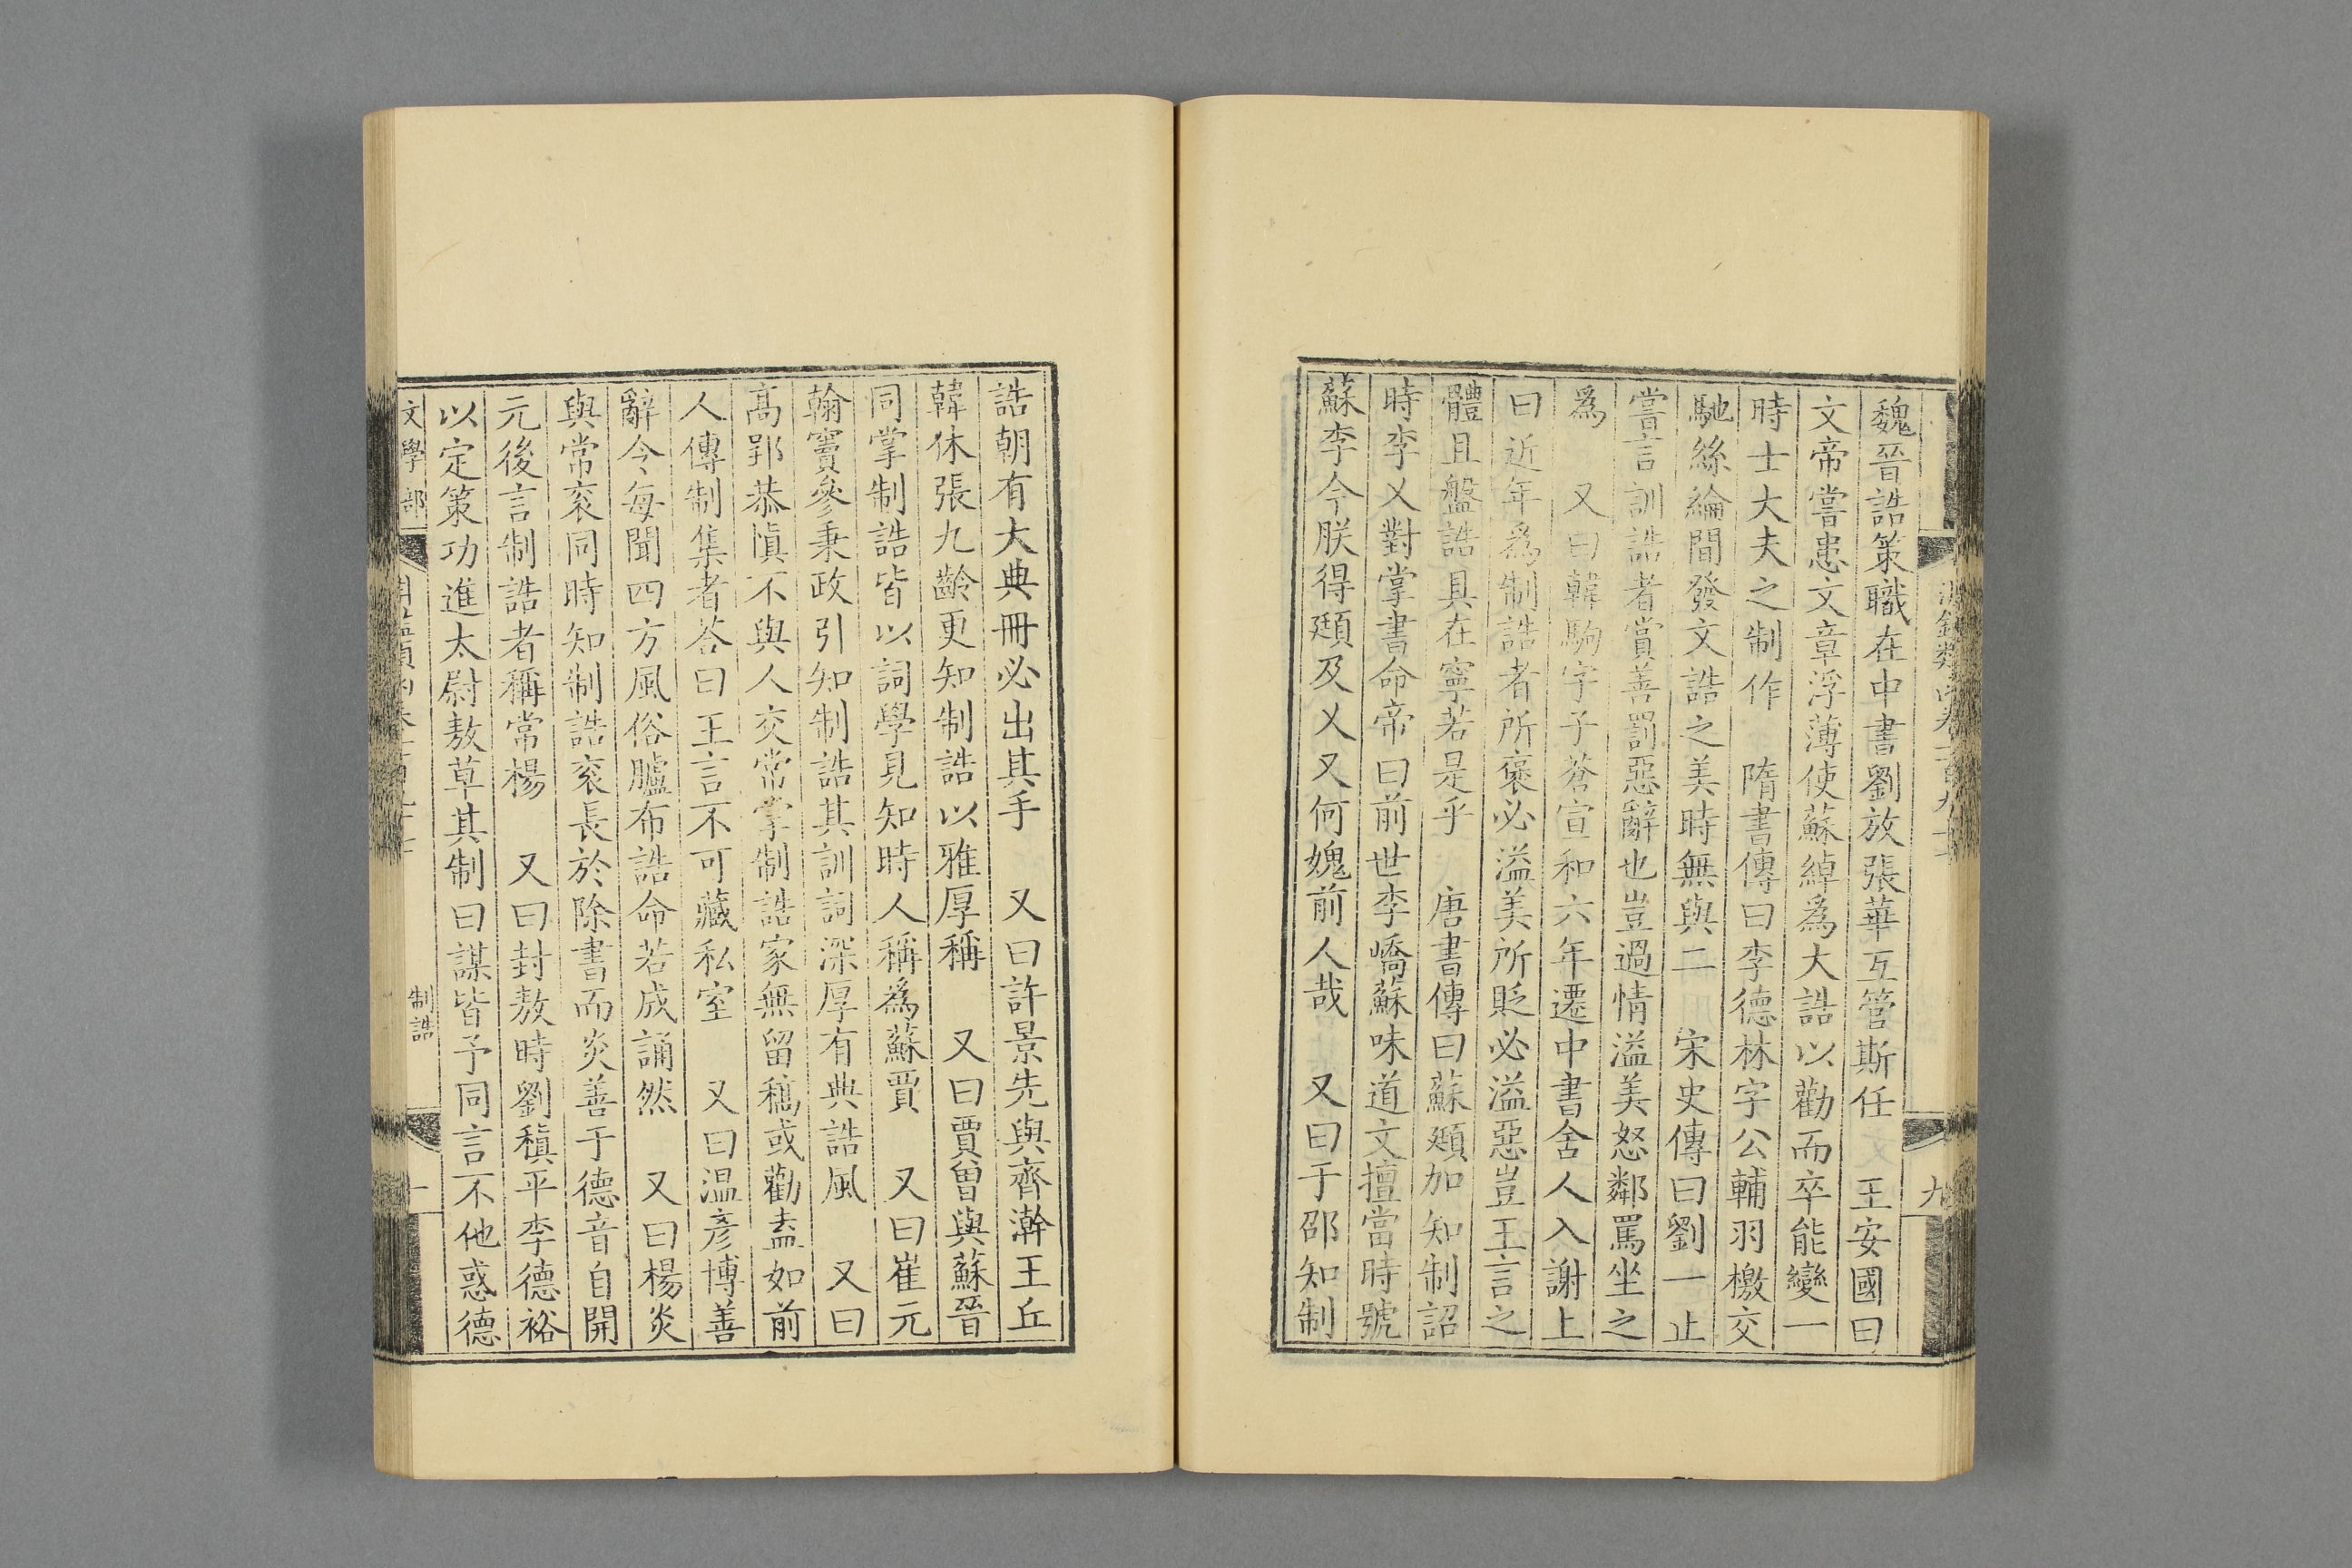 魏晉誥策職在中書劉放張華互管斯任　王安國曰
文帝嘗患文章浮薄使蘇綽爲大誥以勸而卒能變一
時士大夫之制作　隋書傳曰李德林字公輔羽檄交
馳絲綸間發文誥之美時無與二　宋史傳曰劉一止
嘗言訓誥者賞善罰惡辭也豈過情溢美怒鄰罵坐之
爲　又曰韓駒字子蒼宣和六年遷中書舍人入謝上
曰近年爲制誥者所褒必溢美所貶必溢惡豈王言之
體且盤誥具在寧若是乎　唐書傳曰蘇頲加知制誥
時李乂對掌書命帝曰前世李嶠蘇味道文擅當時號
蘇李今朕得頲及乂又何媿前人哉　又曰于邵知制
誥朝有大典冊必出其手　又曰許景先與齊澣王丘
韓休張九齡更知制誥以雅厚稱　又曰賈曾與蘇晉
同掌制誥皆以詞學見知時人稱爲蘇賈　又曰崔元
翰竇參秉政引知制誥其訓詞深厚有典誥風　又曰
高郢恭愼不與人交常掌制誥家無留稿或勸盍如前
人傳制集者答曰王言不可藏私室　又曰温彥博善
辭令每聞四方風俗臚布誥命若成誦然　又曰楊炎
與常衮同時知制誥衮長於除書而炎善于德音自開
元後言制誥者稱常楊　又曰封敖時劉稹平李德裕
以定策功進太尉敖草其制曰謀皆予同言不他惑德
文學部
制誥